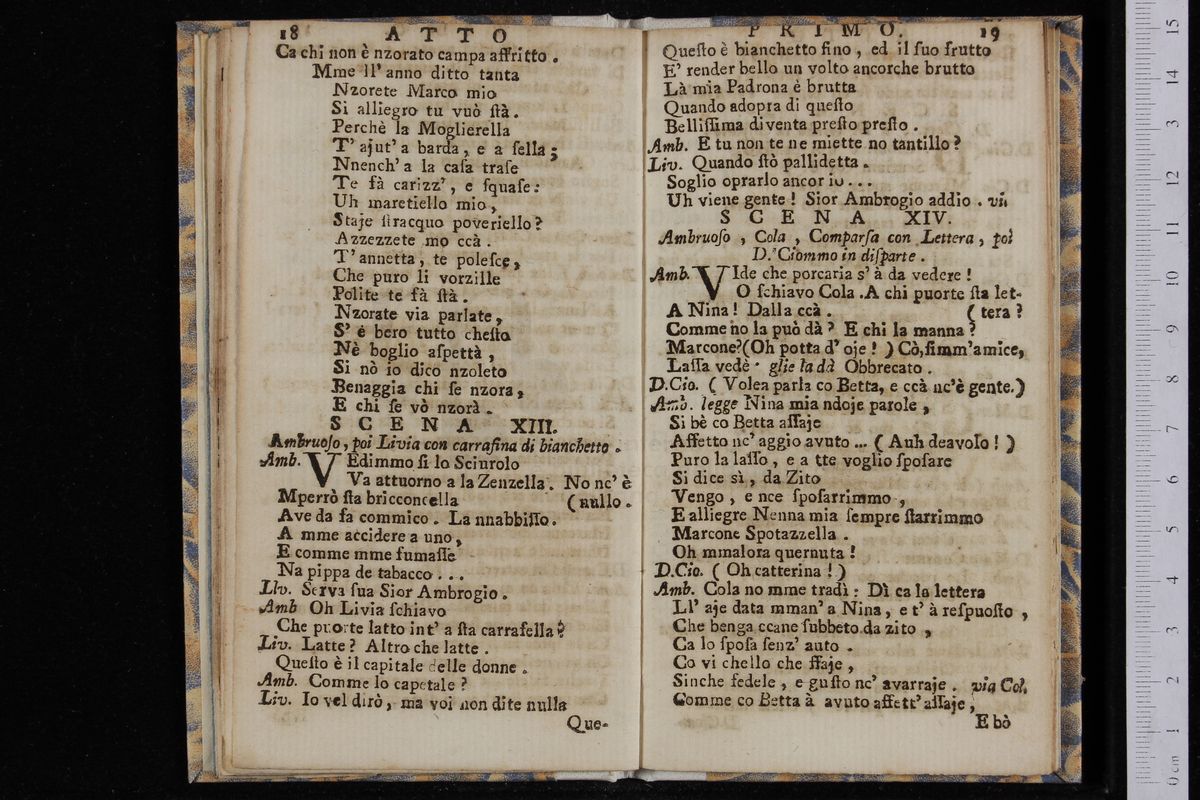 18 ATTO
Ca chi non è nzorato campa affritto .
Mme ll' anno ditto tanta
Nzorete Marco mio
Si alliegro tu vuò ſtà .
Perchè la Moglierella
T' ajut' a barda , e a ſella ;
Nnench' a la caſa traſe
Te fà carizz' , e ſquaſe :
Uh maretiello mio ,
Staje ſtracquo poveriello ?
Azzezzete mo ccà .
T' annetta , te poleſce ,
Che puro li vorzille
Polite te fà ſtà .
Nzorate via parlate ,
S' è bero tutto cheſto
Nè boglio aſpettà ,
Si nò io dico nzoleto
Benaggia chi ſe nzora ,
E chi ſe vò nzorà .
SCENA XIII.
Ambruoſo , poi Livia con carrafina di bianchetto .
Amb. VEdimmo ſi lo Sciurolo
Va attuorno a la Zenzella . No nc' è
Mperrò ſta bricconcella ( nullo .
Ave da fa commico . La nnabbiſſo .
A mme accidere a uno ,
E comme mme fumaſſe
Na pippa de tabacco . . .
Liv. Serva ſua Sior Ambrogio .
Amb Oh Livia ſchiavo
Che puorte latto int' a ſta carrafella ?
Liv. Latte ? Altro che latte .
Queſto è il capitale delle donne .
Amb. Comme lo capetale ?
Liv. Io vel dirò , ma voi non dite nulla
Que-
PRIMO. 19
Queſto è bianchetto fino , ed il ſuo frutto
E' render bello un volto ancorche brutto
Là mia Padrona è brutta
Quando adopra di queſto
Belliſſima diventa preſto preſto .
Amb. E tu non te ne miette no tantillo ?
Liv. Quando ſtò pallidetta .
Soglio oprarlo ancor io . . .
Uh viene gente ! Sior Ambrogio addio . via
SCENA XIV.
Ambruoſo , Cola , Comparſa con Lettera , poi
D. Ciommo in diſparte .
Amb. VIde che porcaria s' à da vedere !
O ſchiavo Cola . A chi puorte ſta let-
A Nina ! Dalla ccà . ( tera ?
Comme no la può dà ? E chi la manna ?
Marcone? (Oh potta d' oje ! ) Cò, ſimm' amice,
Laſſa vedè . glie la dà Obbrecato .
D.Cio. ( Volea parla co Betta, e ccà nc'è gente.)
Amb. legge Nina mia ndoje parole ,
Si bè co Betta aſſaje
Affetto nc' aggio avuto ... ( Auh deavolo ! )
Puro la laſſo , e a tte voglio ſpoſare
Si dice sì , da Zito
Vengo , e nce ſpoſarrimmo ,
E alliegre Nenna mia ſempre ſtarrimmo
Marcone Spotazzella .
Oh mmalora quernuta !
D.Cio. ( Oh catterina ! )
Amb. Cola no mme tradì : Dì ca la lettera
Ll' aje data mman' a Nina , e t' à reſpuoſto ,
Che benga ccane ſubbeto da zito ,
Ca lo ſpoſa ſenz' auto .
Co vi chello che ffaje ,
Sinche fedele , e guſto nc' avarraje . via Col.
Comme co Betta à avuto affett' aſſaje ,
E bò
15
14
13
12
11
10
9
8
7
6
5
4
3
2
1
0 cm